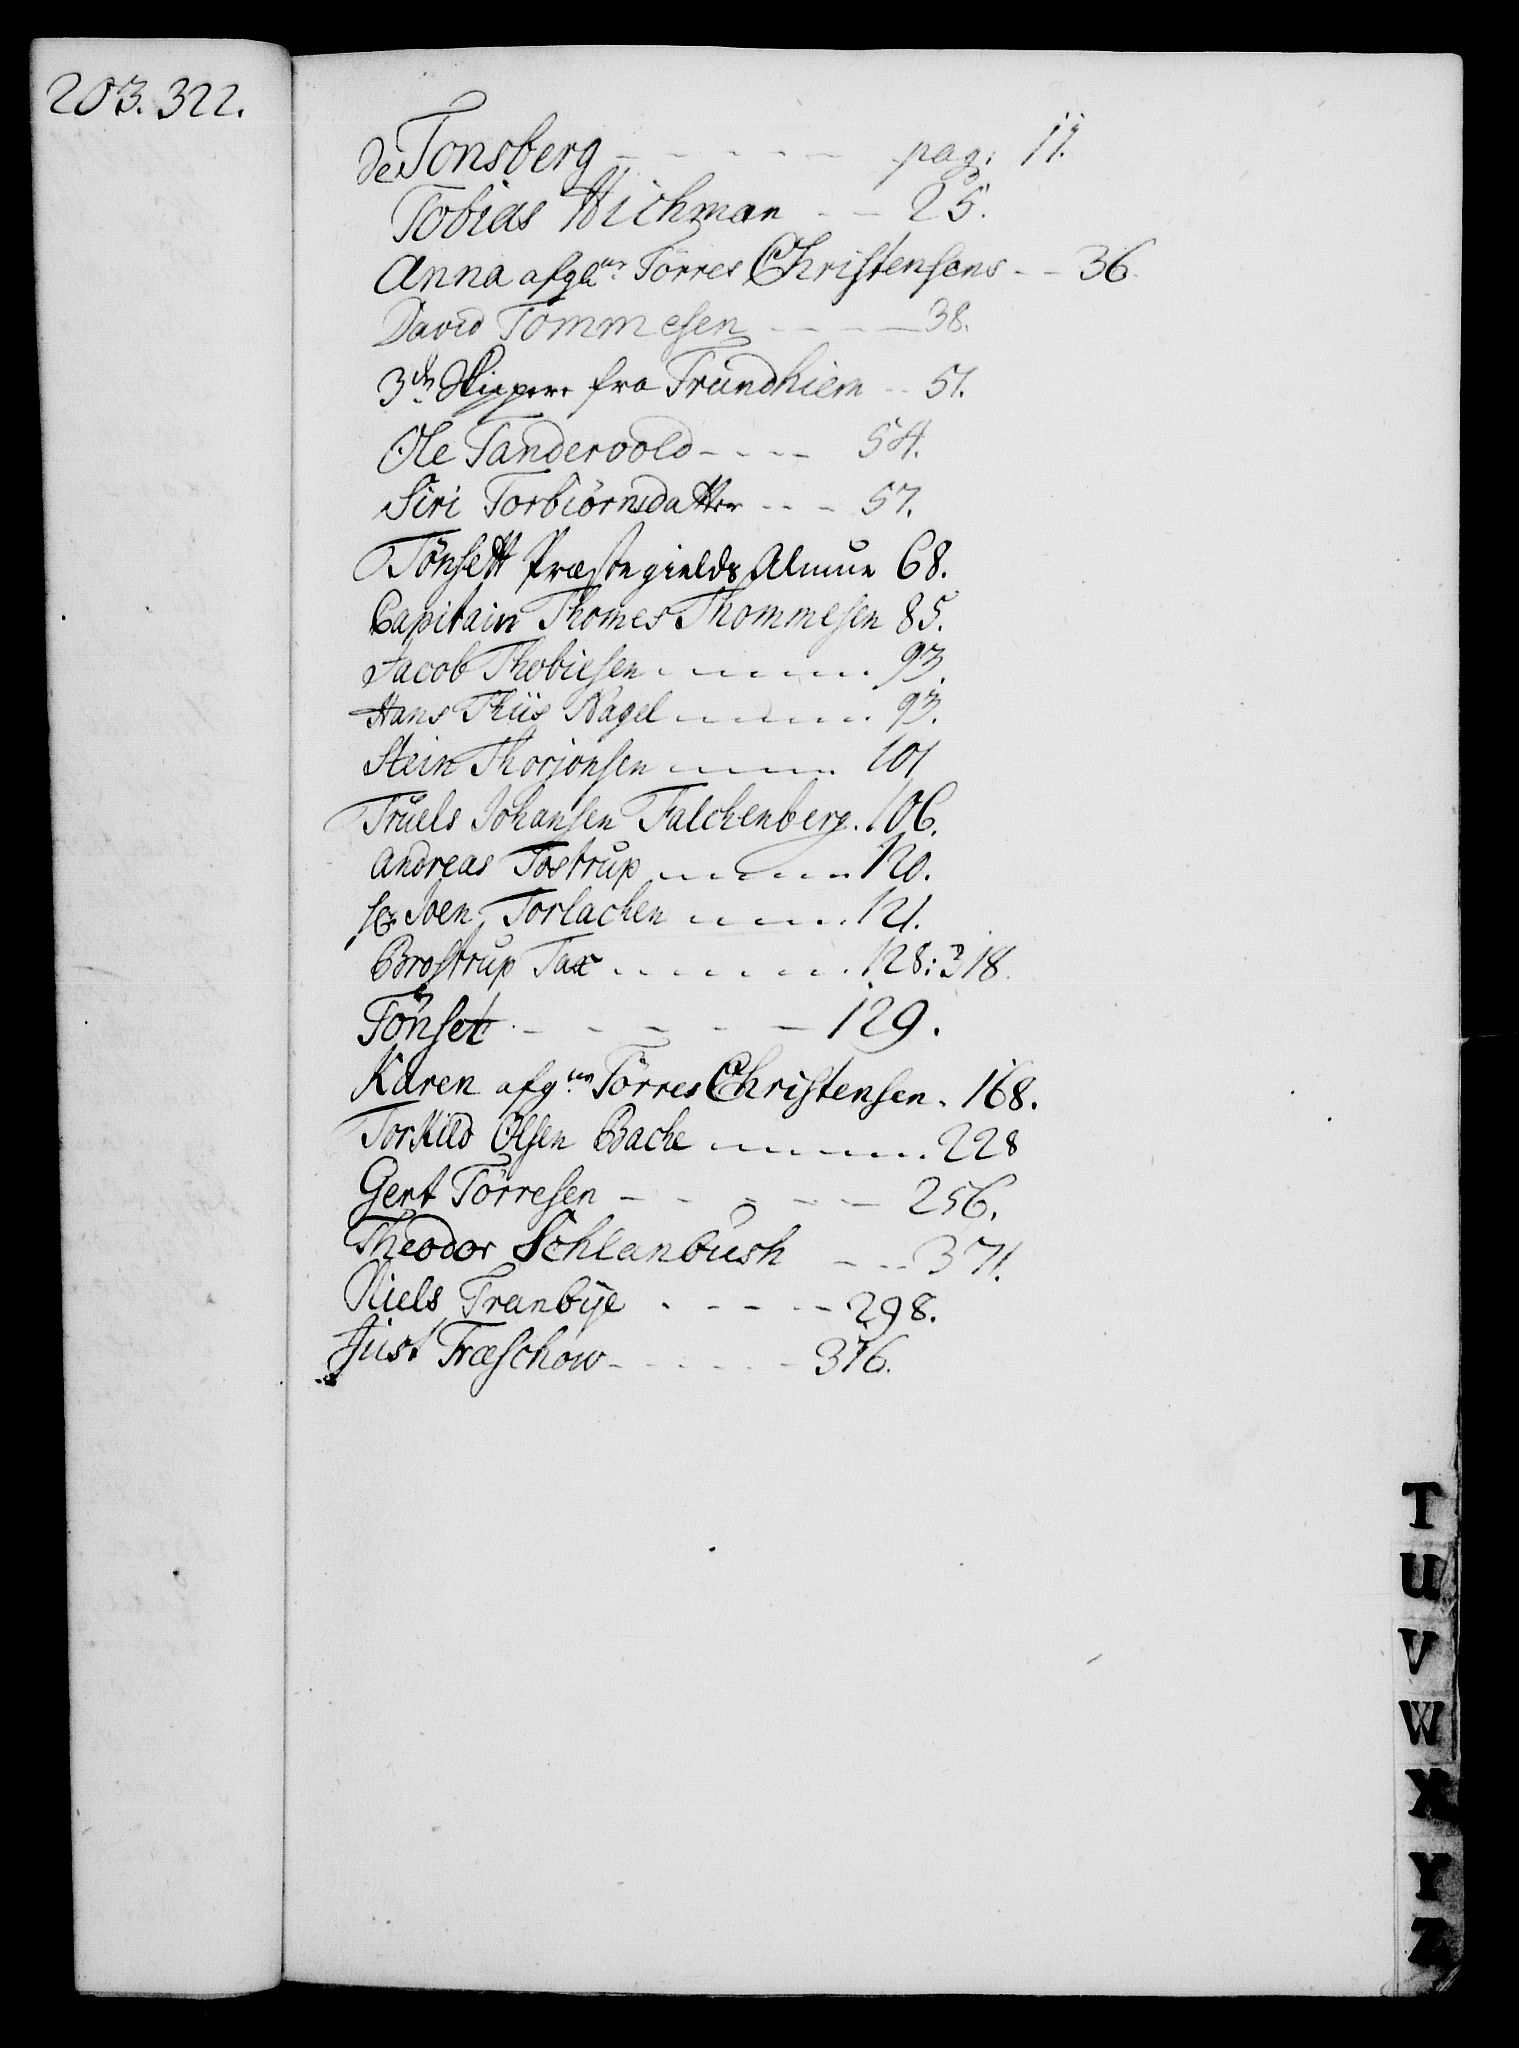 203. 322.
de Tonsberg - - - - - - pag: 11.
Tobias Wichman - - 25.
Anna afgl. Törres Christensens - - 36.
David Tommesen - - - - 38.
3de Skippere fra Trundhiem - - 51.
Ole Tandervold - - - - 54.
Siri Torbiörnsdatter - - - 57.
Tönsett Præstegields Almue 68.
Capitain Thomes Thommesen 85.
Jacob Thobiesen - - - - - 93.
Hans Thiis Nagel - - - - - 93.
Stein Thorjonsen - - - - 101
Truels Johansen Falchenberg. 106.
Andreas Tostrup - - - - - 120.
Joen Torlachen - - - - 121.
Brostrup Tax - - - - - - 128: 318.
Tönset - - - - - - 129.
Karen afg. Törres Christensen. 168.
Torkild Olsen Bache - - - - - 228
Gert Törresen - - - - - - 256.
Theodor Schlanbush - - - 371.
Niels Tranbye - - - - - 298.
Just Træschow - - - - - - 316.
T
U
V
W
X
Y
Z